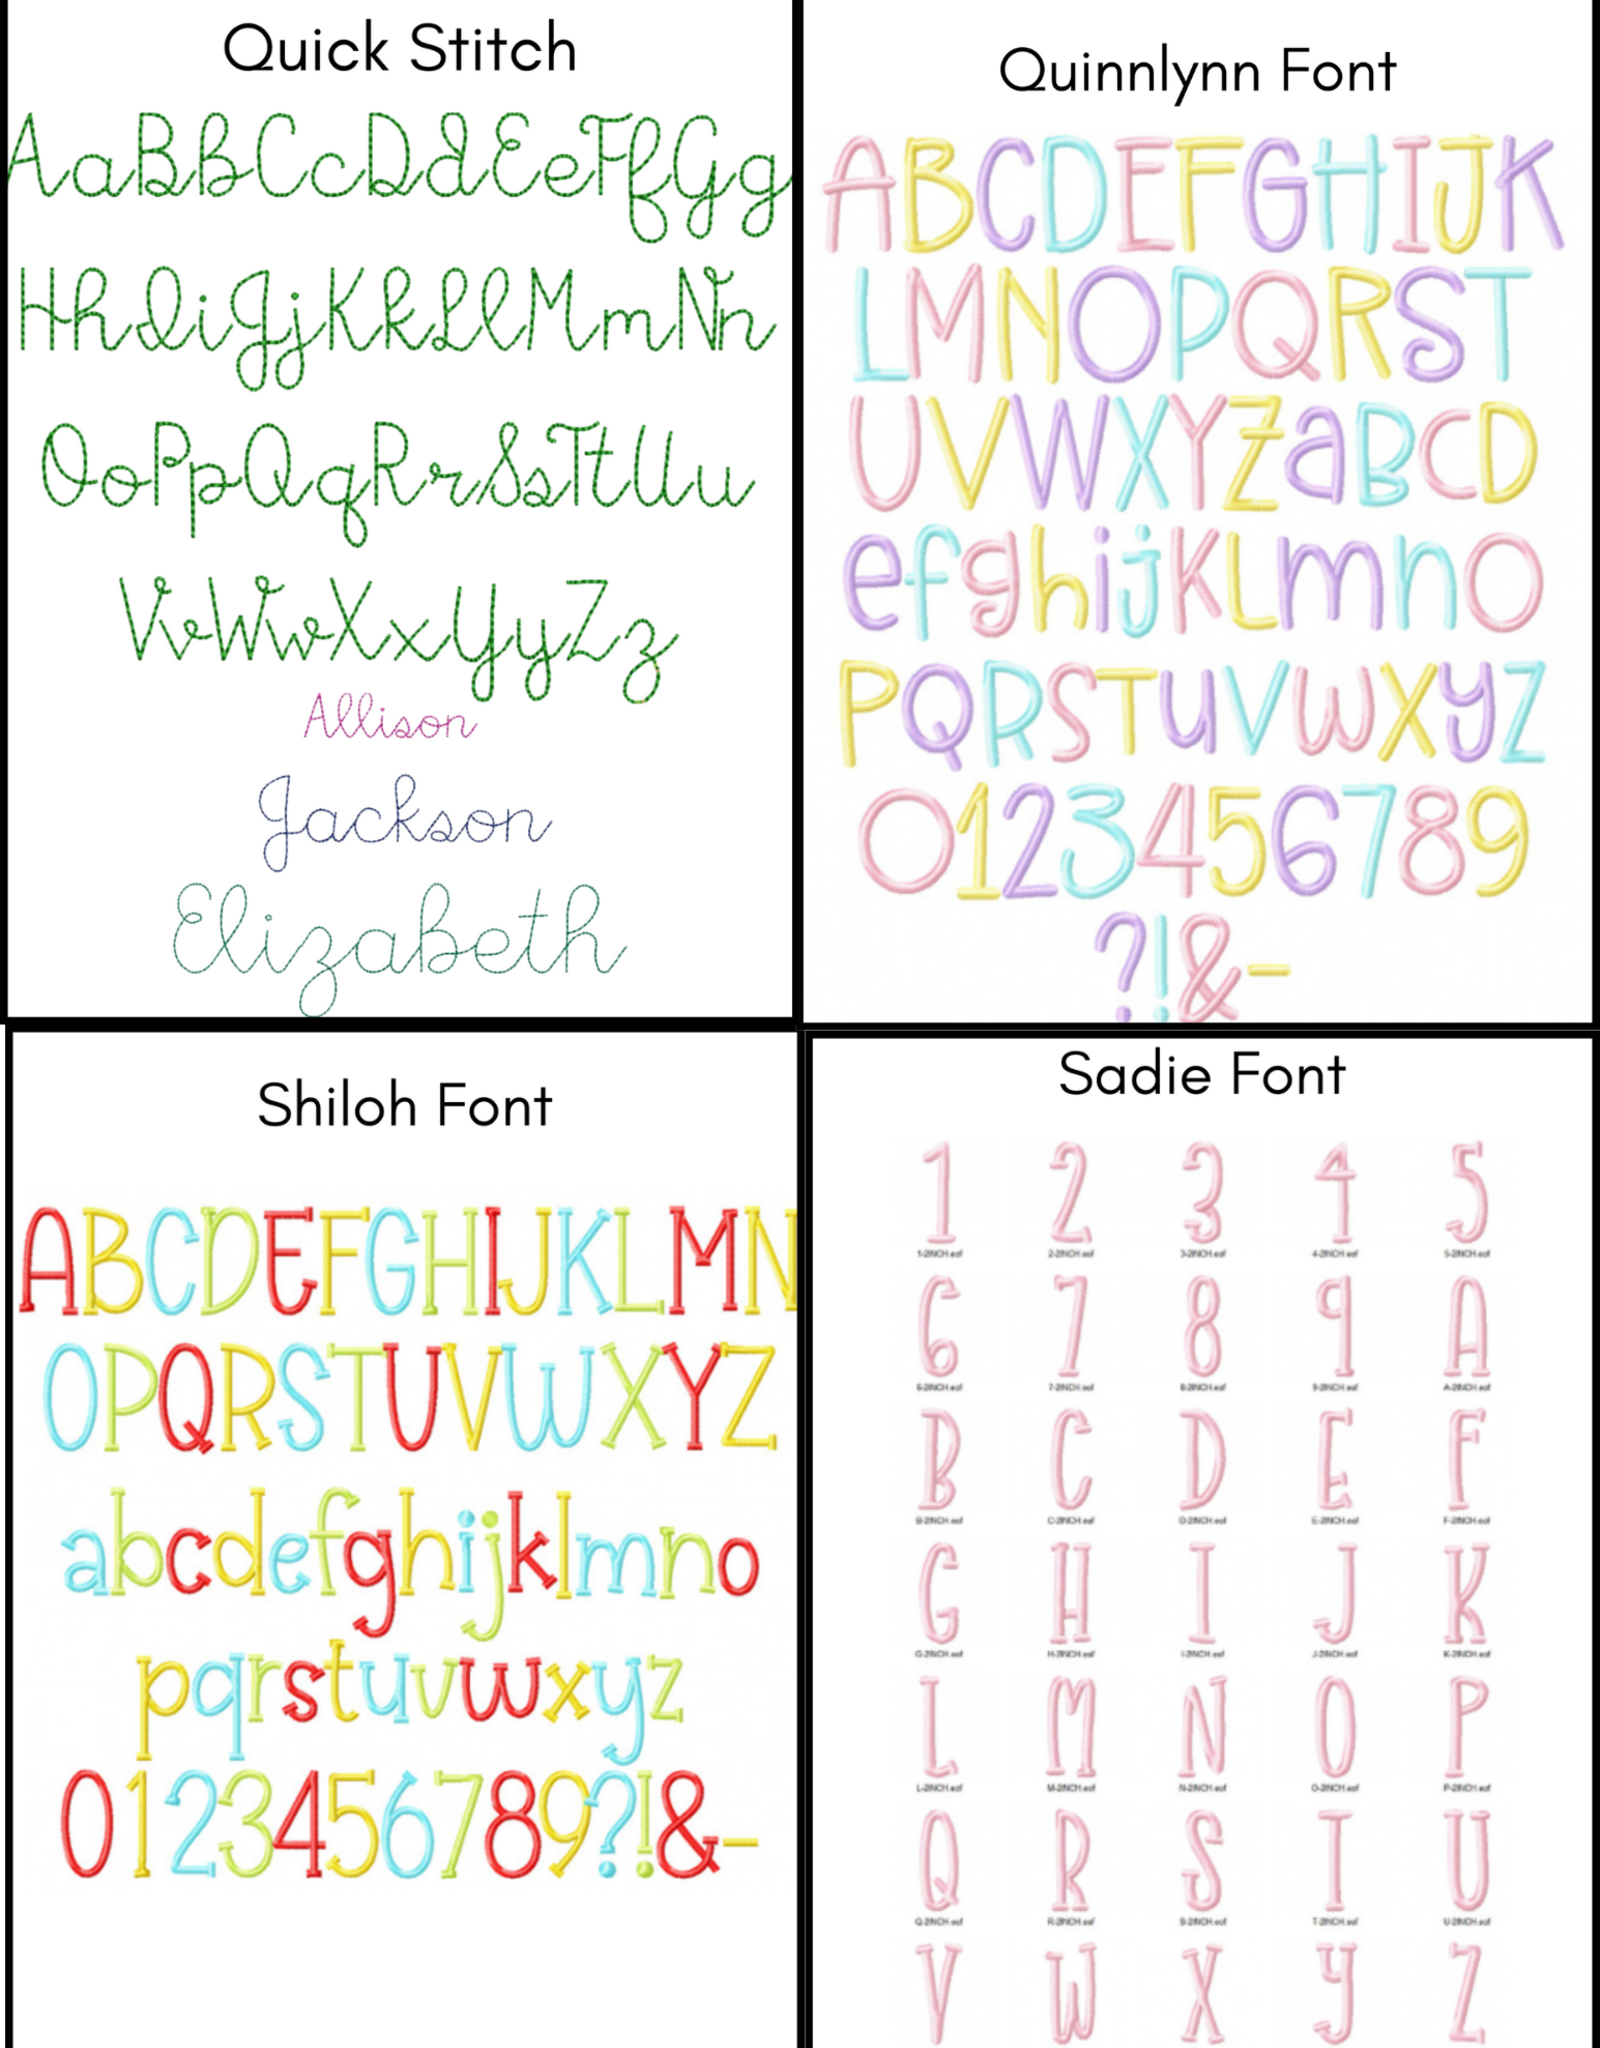 Quick Stitch
AaBbCcDdEeFfGg
HhIiJjKkLlMmNn
OoPpQqRrSsTtUu
VvWwXxYyZz
Allison
Jackson
Elizabeth
Quinnlynn Font
ABCDEFGHIJK
LMNOPQRST
UVWXYZaBCD
efghijKLmnO
PQRSTuVWXYZ
0123456789
?!&-
Shiloh Font
ABCDEFGHIJKLMN
OPQRSTUVWXYZ
abcdefghijklmno
pqrstuvwxyz
0123456789?!&-
Sadie Font
1 2 3 4 5
1-2INCH.eof 2-2INCH.eof 3-2INCH.eof 4-2INCH.eof 5-2INCH.eof
6 7 8 9 A
6-2INCH.eof 7-2INCH.eof 8-2INCH.eof 9-2INCH.eof A-2INCH.eof
B C D E F
B-2INCH.eof C-2INCH.eof D-2INCH.eof E-2INCH.eof F-2INCH.eof
G H I J K
G-2INCH.eof H-2INCH.eof I-2INCH.eof J-2INCH.eof K-2INCH.eof
L M N O P
L-2INCH.eof M-2INCH.eof N-2INCH.eof O-2INCH.eof P-2INCH.eof
Q R S T U
Q-2INCH.eof R-2INCH.eof S-2INCH.eof T-2INCH.eof U-2INCH.eof
V W X Y Z